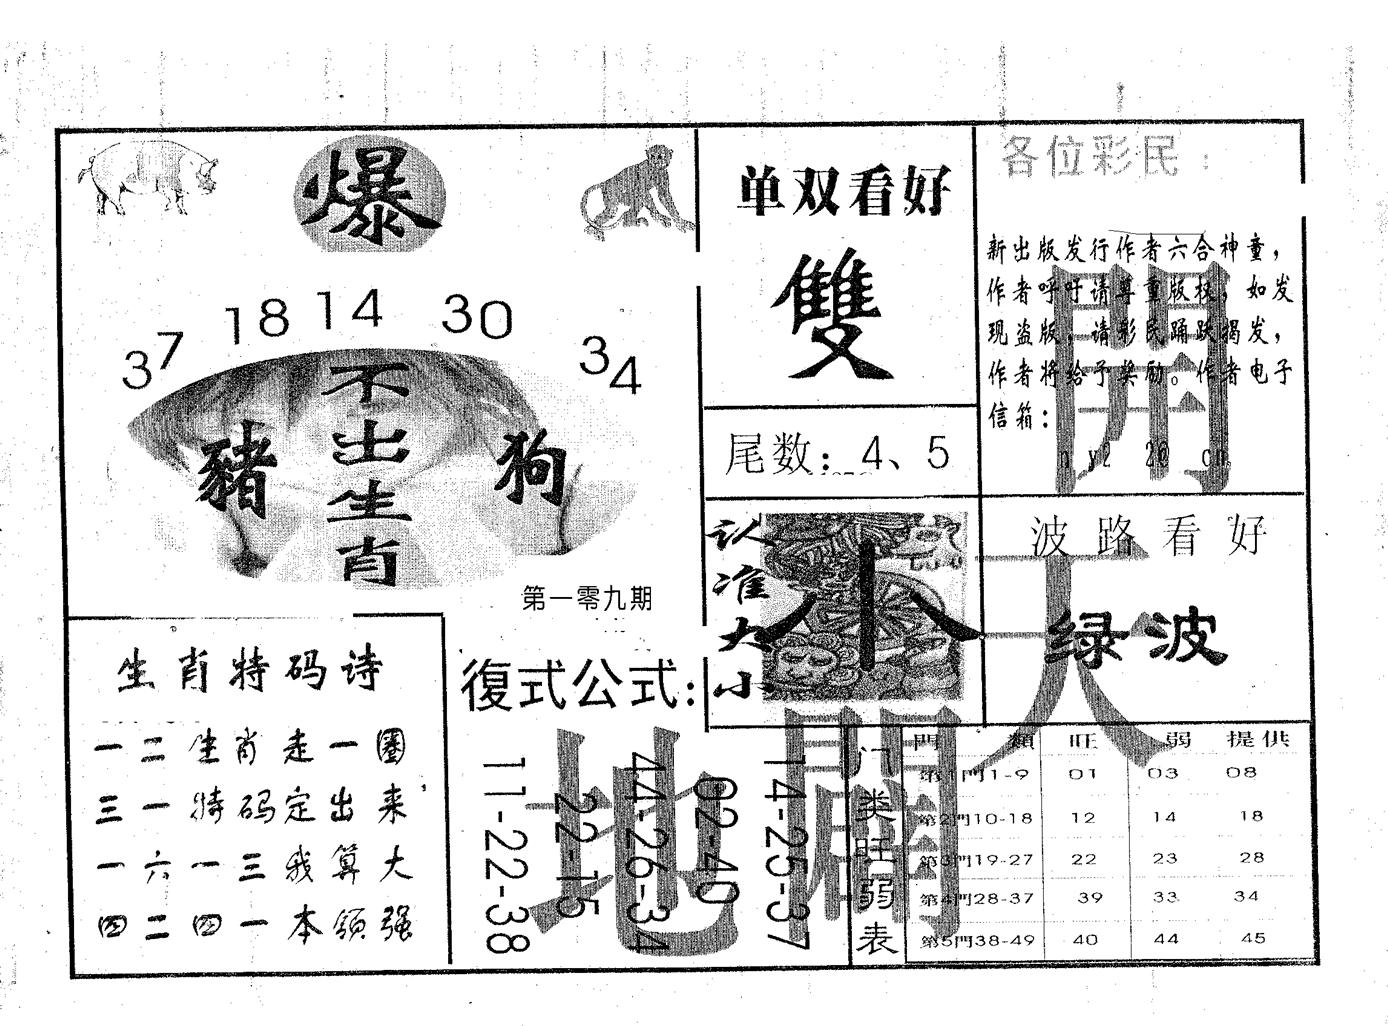 爆
37 18 14 30 34
不出生肖
豬
狗
第一零九期
单双看好
雙
尾数：4、5
各位彩民：
新出版发行作者六合神童，
作者呼吁请尊重版权，如发
现盗版，请彩民踊跃揭发，
作者将给予奖励。作者电子
信箱：
認准大小
小
波路看好
绿波
開
天
闢
地
生肖特码诗
一二生肖走一圈
三一特码定出来
一六一三我算大
四二四一本领强
復式公式：
14-25-37
02-40
44-26-34
22-15
11-22-38
门类旺弱表
門類 旺 弱 提供
第1門1-9 01 03 08
第2門10-18 12 14 18
第3門19-27 22 23 28
第4門28-37 39 33 34
第5門38-49 40 44 45